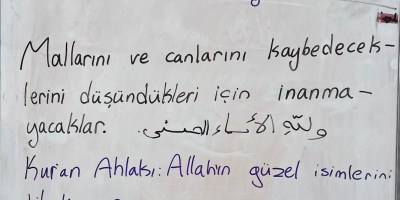 Mallarını ve canlarını kaybedecek-
lerini düşündükleri için inanma-
yacaklar. ولله الأسماء الحسنى.
Kur'an Ahlakı: Allah'ın güzel isimlerini